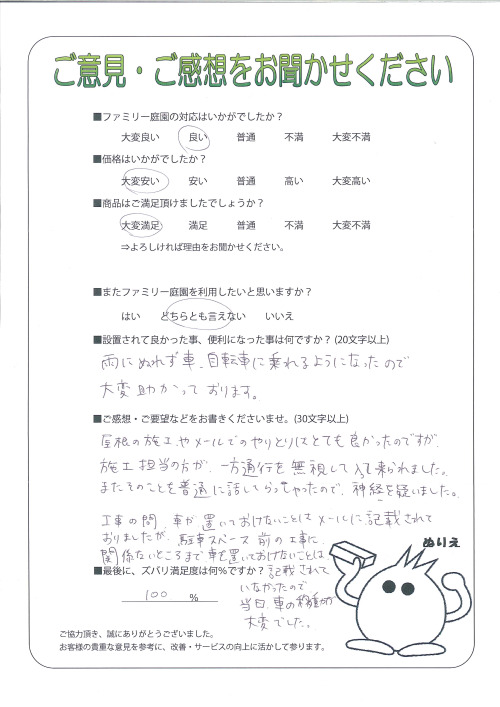 ご意見・ご感想をお聞かせください
■ファミリー庭園の対応はいかがでしたか？
大変良い 良い 普通 不満 大変不満
■価格はいかがでしたか？
大変安い 安い 普通 高い 大変高い
■商品はご満足頂けましたでしょうか？
大変満足 満足 普通 不満 大変不満
⇒よろしければ理由をお聞かせください。
■またファミリー庭園を利用したいと思いますか？
はい どちらとも言えない いいえ
■設置されて良かった事、便利になった事は何ですか？(20文字以上)
雨にぬれず車、自転車に乗れるようになったので
大変助かっております。
■ご感想・ご要望などをお書きくださいませ。(30文字以上)
屋根の施工やメールでのやりとりはとても良かったのですが、
施工担当の方が、一方通行を無視して入って来られました。
またそのことを普通に話してらっしゃったので、神経を疑いました。
工事の間、車が置いておけないことはメールに記載されて
おりましたが、駐車スペース前の工事に
関係ないところまで車を置いておけないことは
■最後に、ズバリ満足度は何％ですか？ 記載されて
いなかったので
100 %
当日、車の移動が
大変でした。
ぬりえ
ご協力頂き、誠にありがとうございました。
お客様の貴重な意見を参考に、改善・サービスの向上に活かして参ります。